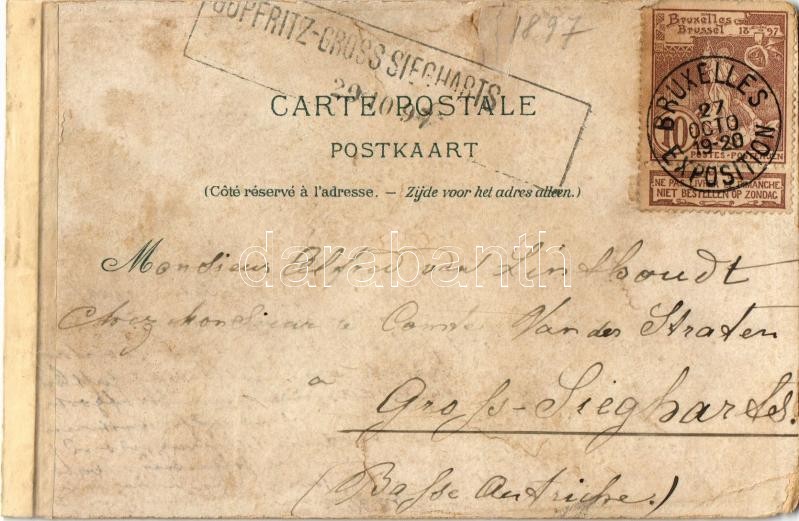 GÖPFRITZ-GROSS SIEGHARTS
29.10.97
1897
Bruxelles
Brussel 1897
10
POSTES-POSTERIJEN
NE PAS LIVRER LE DIMANCHE
NIET BESTELLEN OP ZONDAG
BRUXELLES
27
OCTO
19-20
EXPOSITION
CARTE POSTALE
POSTKAART
(Côté réservé à l'adresse. – Zijde voor het adres alleen.)
darabanth
Monsieur Alfred van Linthoudt
Chez Monsieur le Comte Van der Straten
a
Gross-Siegharts.
(Basse Autriche.)